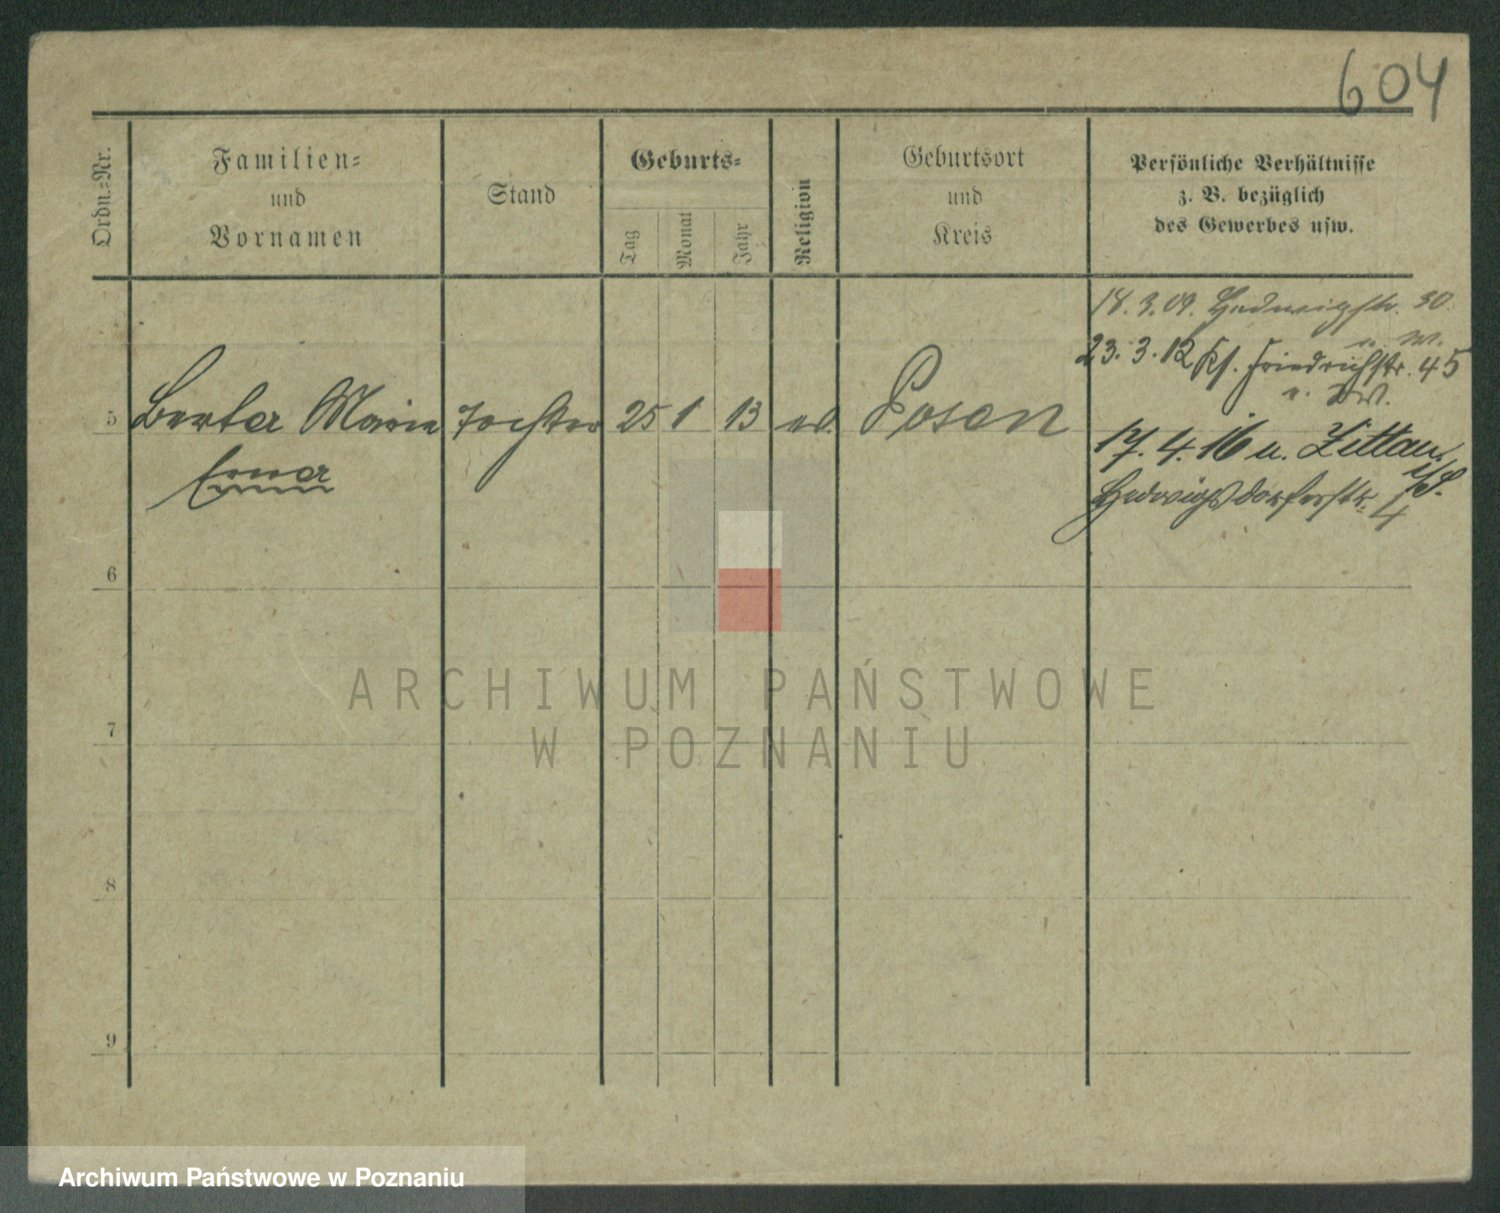 604
Ordn.-Nr.
Familien-
und
Vornamen
Stand
Geburts-
Tag
Monat
Jahr
Religion
Geburtsort
und
Kreis
Persönliche Verhältnisse
z. B. bezüglich
des Gewerbes usw.
18. 3. 09. Hedwigstr. 30.
23. 3. 12 Kf. Friedrichstr. 45
5 Berta Marie Tochter 25 1 13 ev. Posen
Erna
17. 4. 16 n. Zittau
i/S.
Hedwigsdorferstr. 4
6
7
8
9
ARCHIWUM PAŃSTWOWE
W POZNANIU
Archiwum Państwowe w Poznaniu